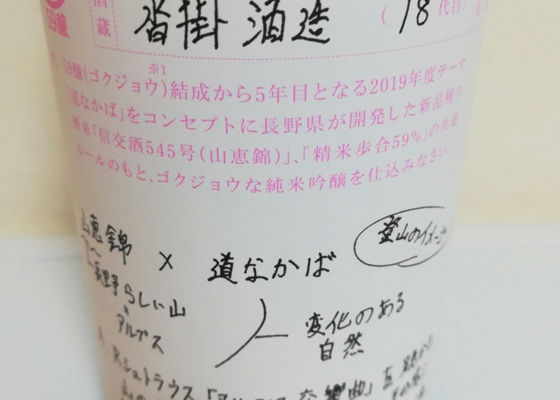 59醸
酒蔵 沓掛酒造 (18代目)
※1
59醸(ゴクジョウ)結成から5年目となる2019年度テーマ
「道なかば」をコンセプトに長野県が開発した新品種の
酒米「信交酒545号(山恵錦)」、「精米歩合59%」の共通
ルールのもと、ゴクジョウな純米吟醸を仕込みなさい。
山恵錦 × 道なかば 登山のイメージ
長野らしい山
アルプス
変化のある
自然
R.シュトラウス「